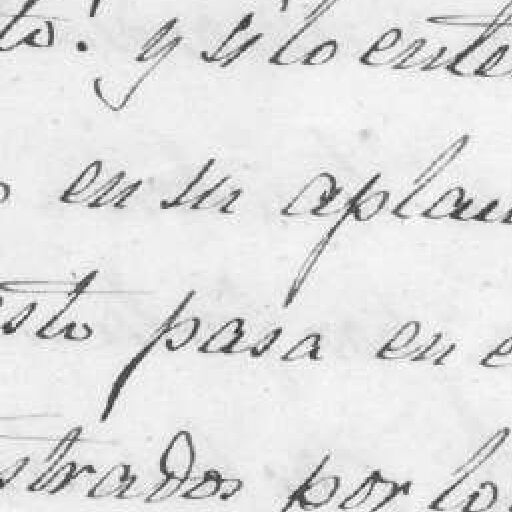 to: y si lo ente
o en su aplau
sto pasa en e
strados por lo